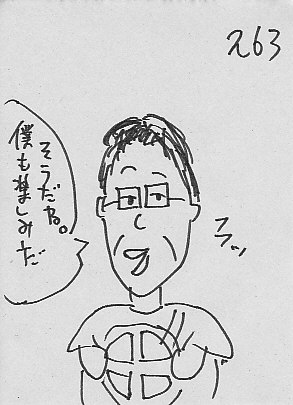 え63
そうだね。
僕も楽しみだ
フッ